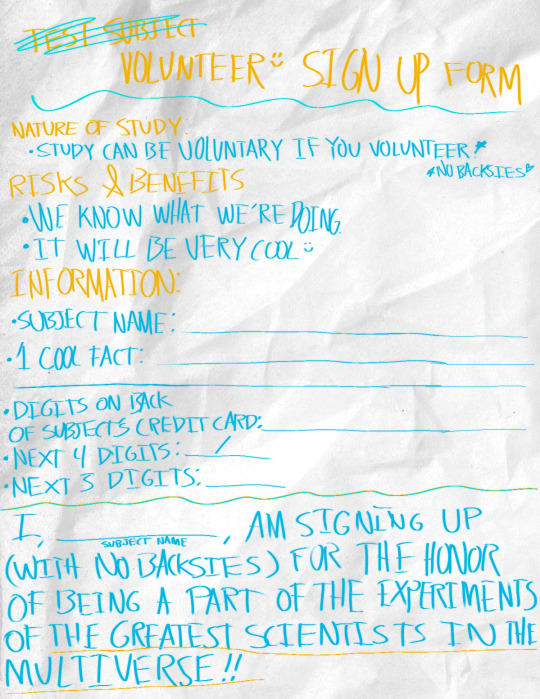 TEST SUBJECT
VOLUNTEER SIGN UP FORM
NATURE OF STUDY:
• STUDY CAN BE VOLUNTARY IF YOU VOLUNTEER!*
*NO BACKSIES*
RISKS & BENEFITS
• WE KNOW WHAT WE'RE DOING.
• IT WILL BE VERY COOL
INFORMATION:
• SUBJECT NAME:
• 1 COOL FACT:
• DIGITS ON BACK
OF SUBJECT'S CREDIT CARD:
• NEXT 4 DIGITS: /
• NEXT 3 DIGITS:
I, , AM SIGNING UP
SUBJECT NAME
(WITH NO BACKSIES) FOR THE HONOR
OF BEING A PART OF THE EXPERIMENTS
OF THE GREATEST SCIENTISTS IN THE
MULTIVERSE!!